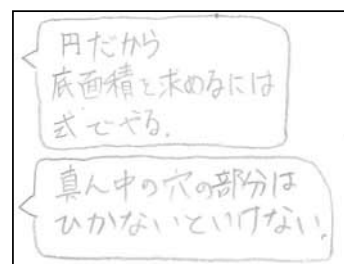 円だから
底面積を求めるには
式でやる.
真ん中の穴の部分は
ひかないといけない.